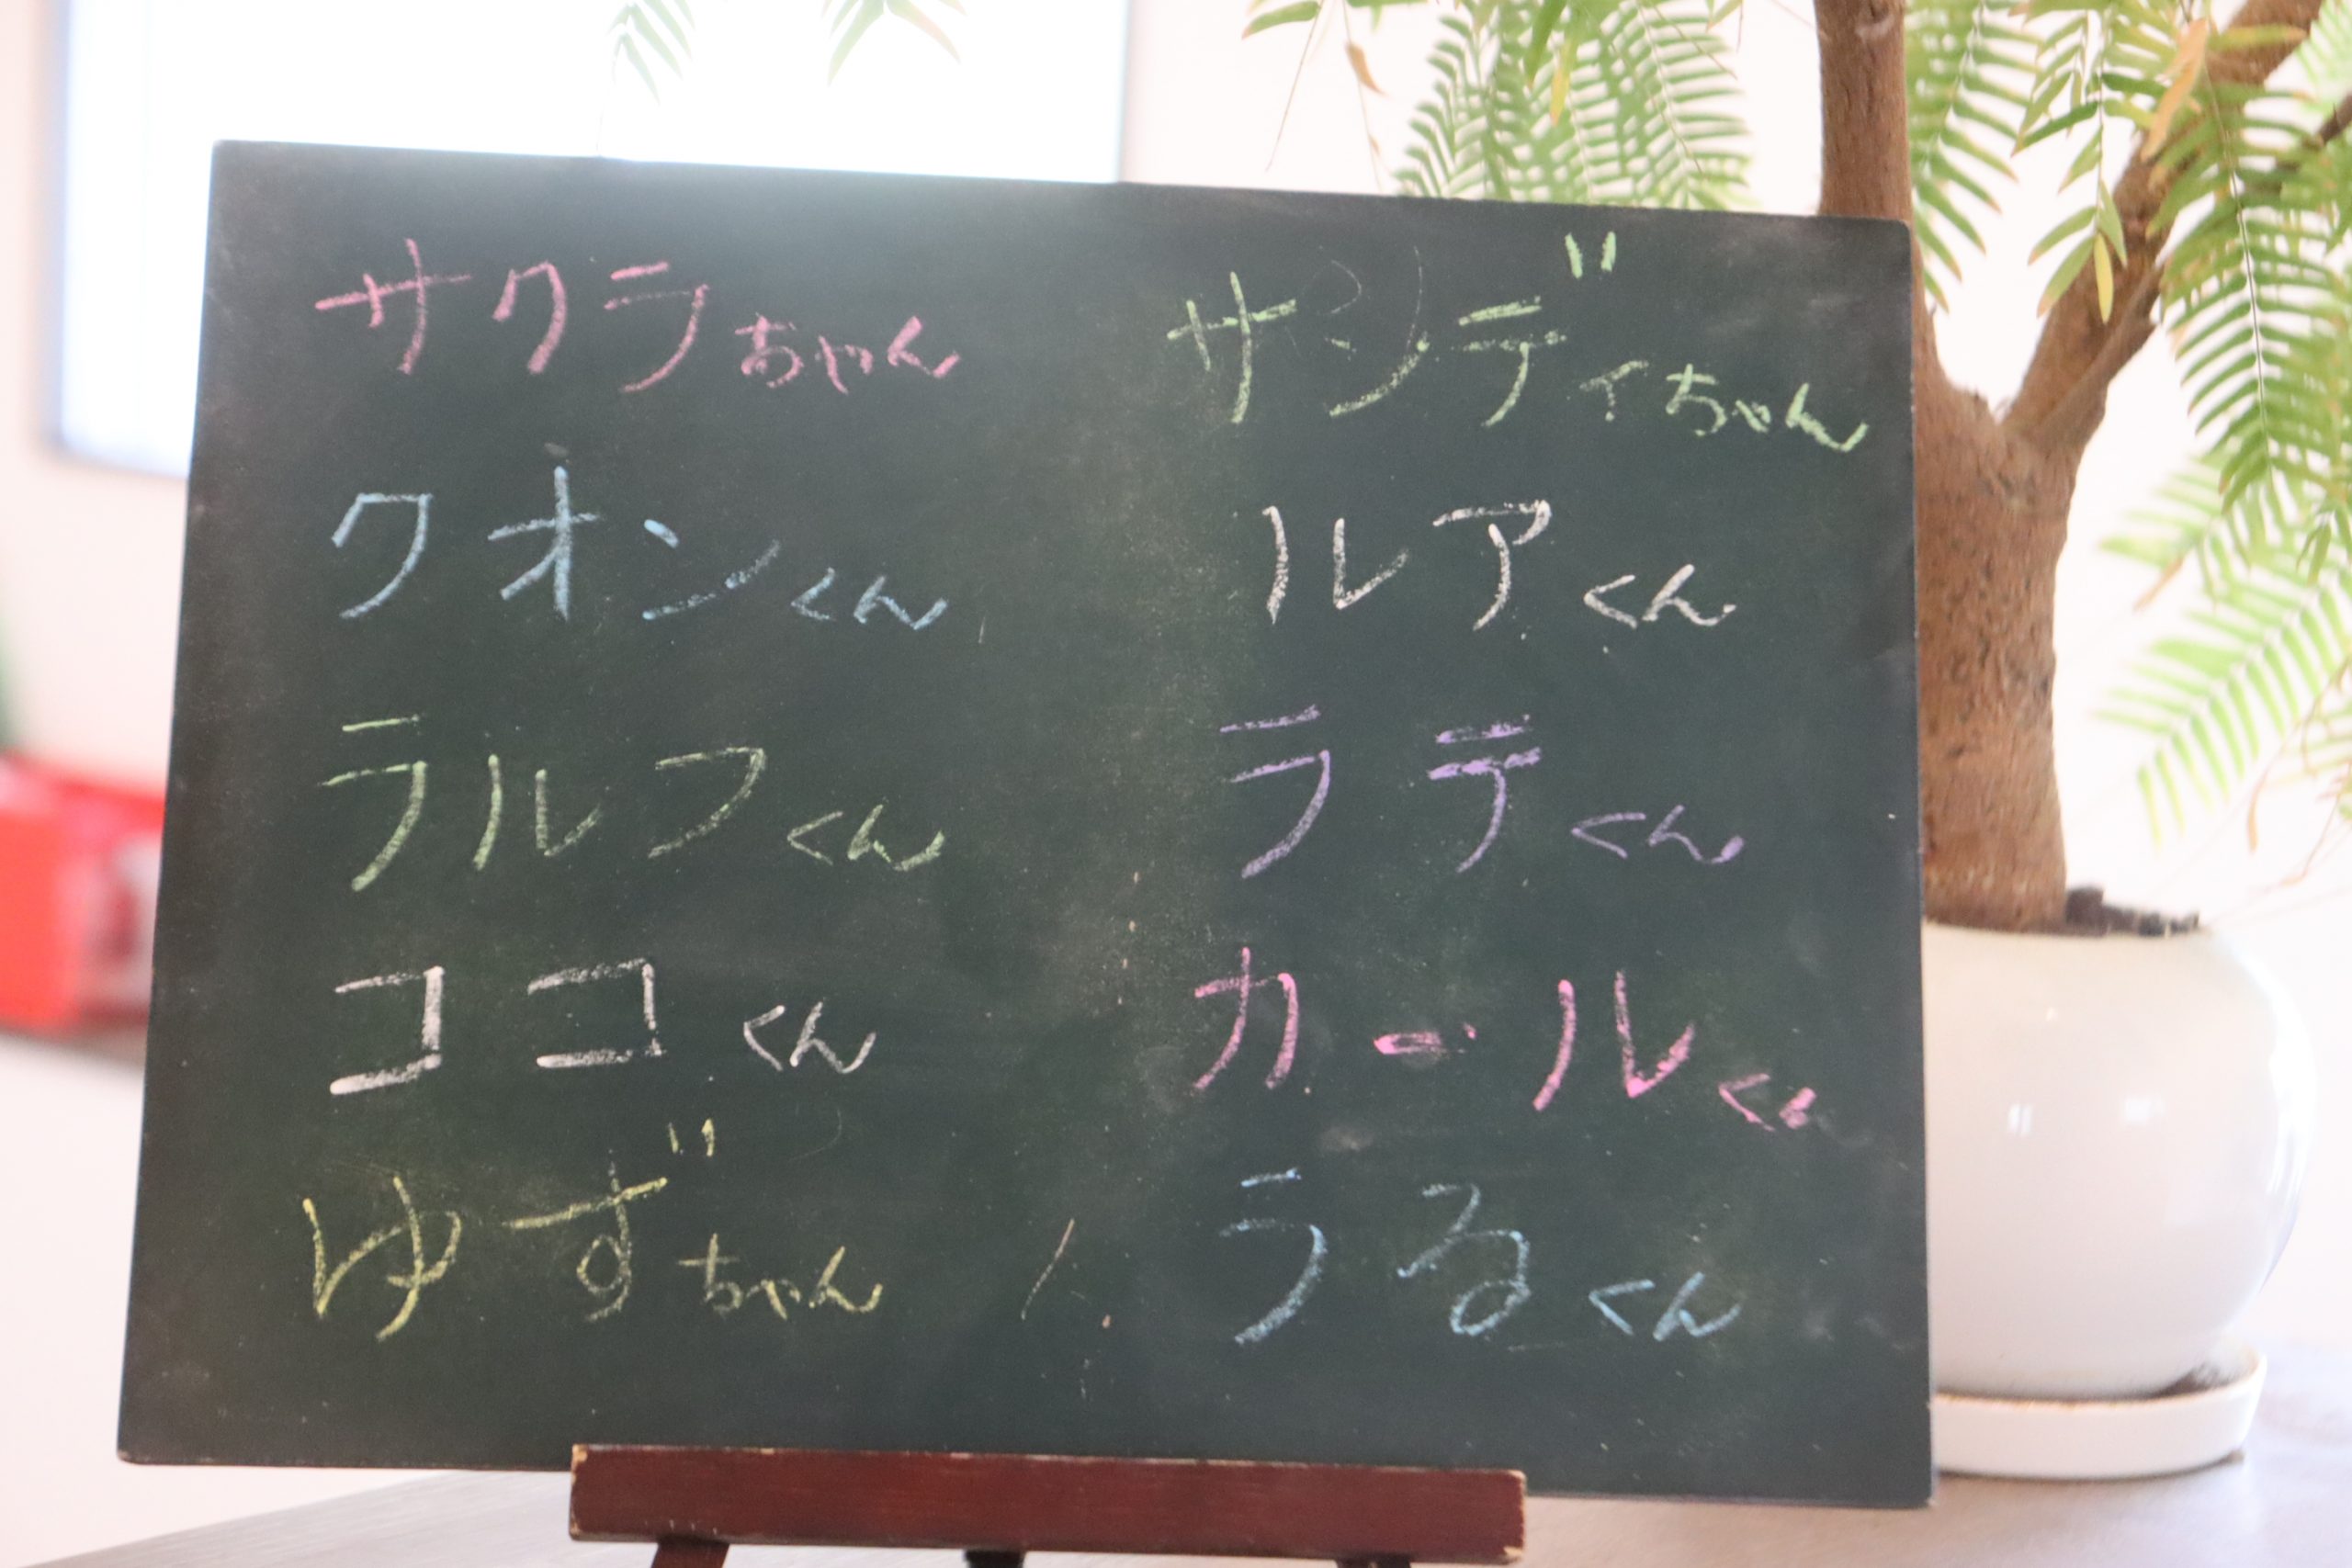 サクラちゃん
クオンくん
ラルフくん
ココくん
ゆずちゃん
サンディちゃん
ルアくん
ラテくん
カールくん
うるくん